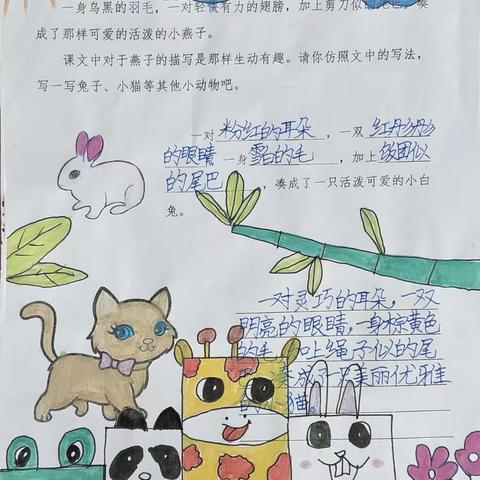 一身乌黑的羽毛，一对轻快有力的翅膀，加上剪刀似的尾巴，凑
成了那样可爱的活泼的小燕子。
课文中对于燕子的描写是那样生动有趣。请你仿照文中的写法，
写一写兔子、小猫等其他小动物吧。
一对粉红的耳朵，一双红丹丹
的眼睛一身雪白的毛，加上饭团似
的尾巴，凑成了一只活泼可爱的小白
兔。
一对灵巧的耳朵，一双
明亮的眼睛，一身棕黄色
的毛 上绳子似的尾
凑成 美丽优雅
的 猫。